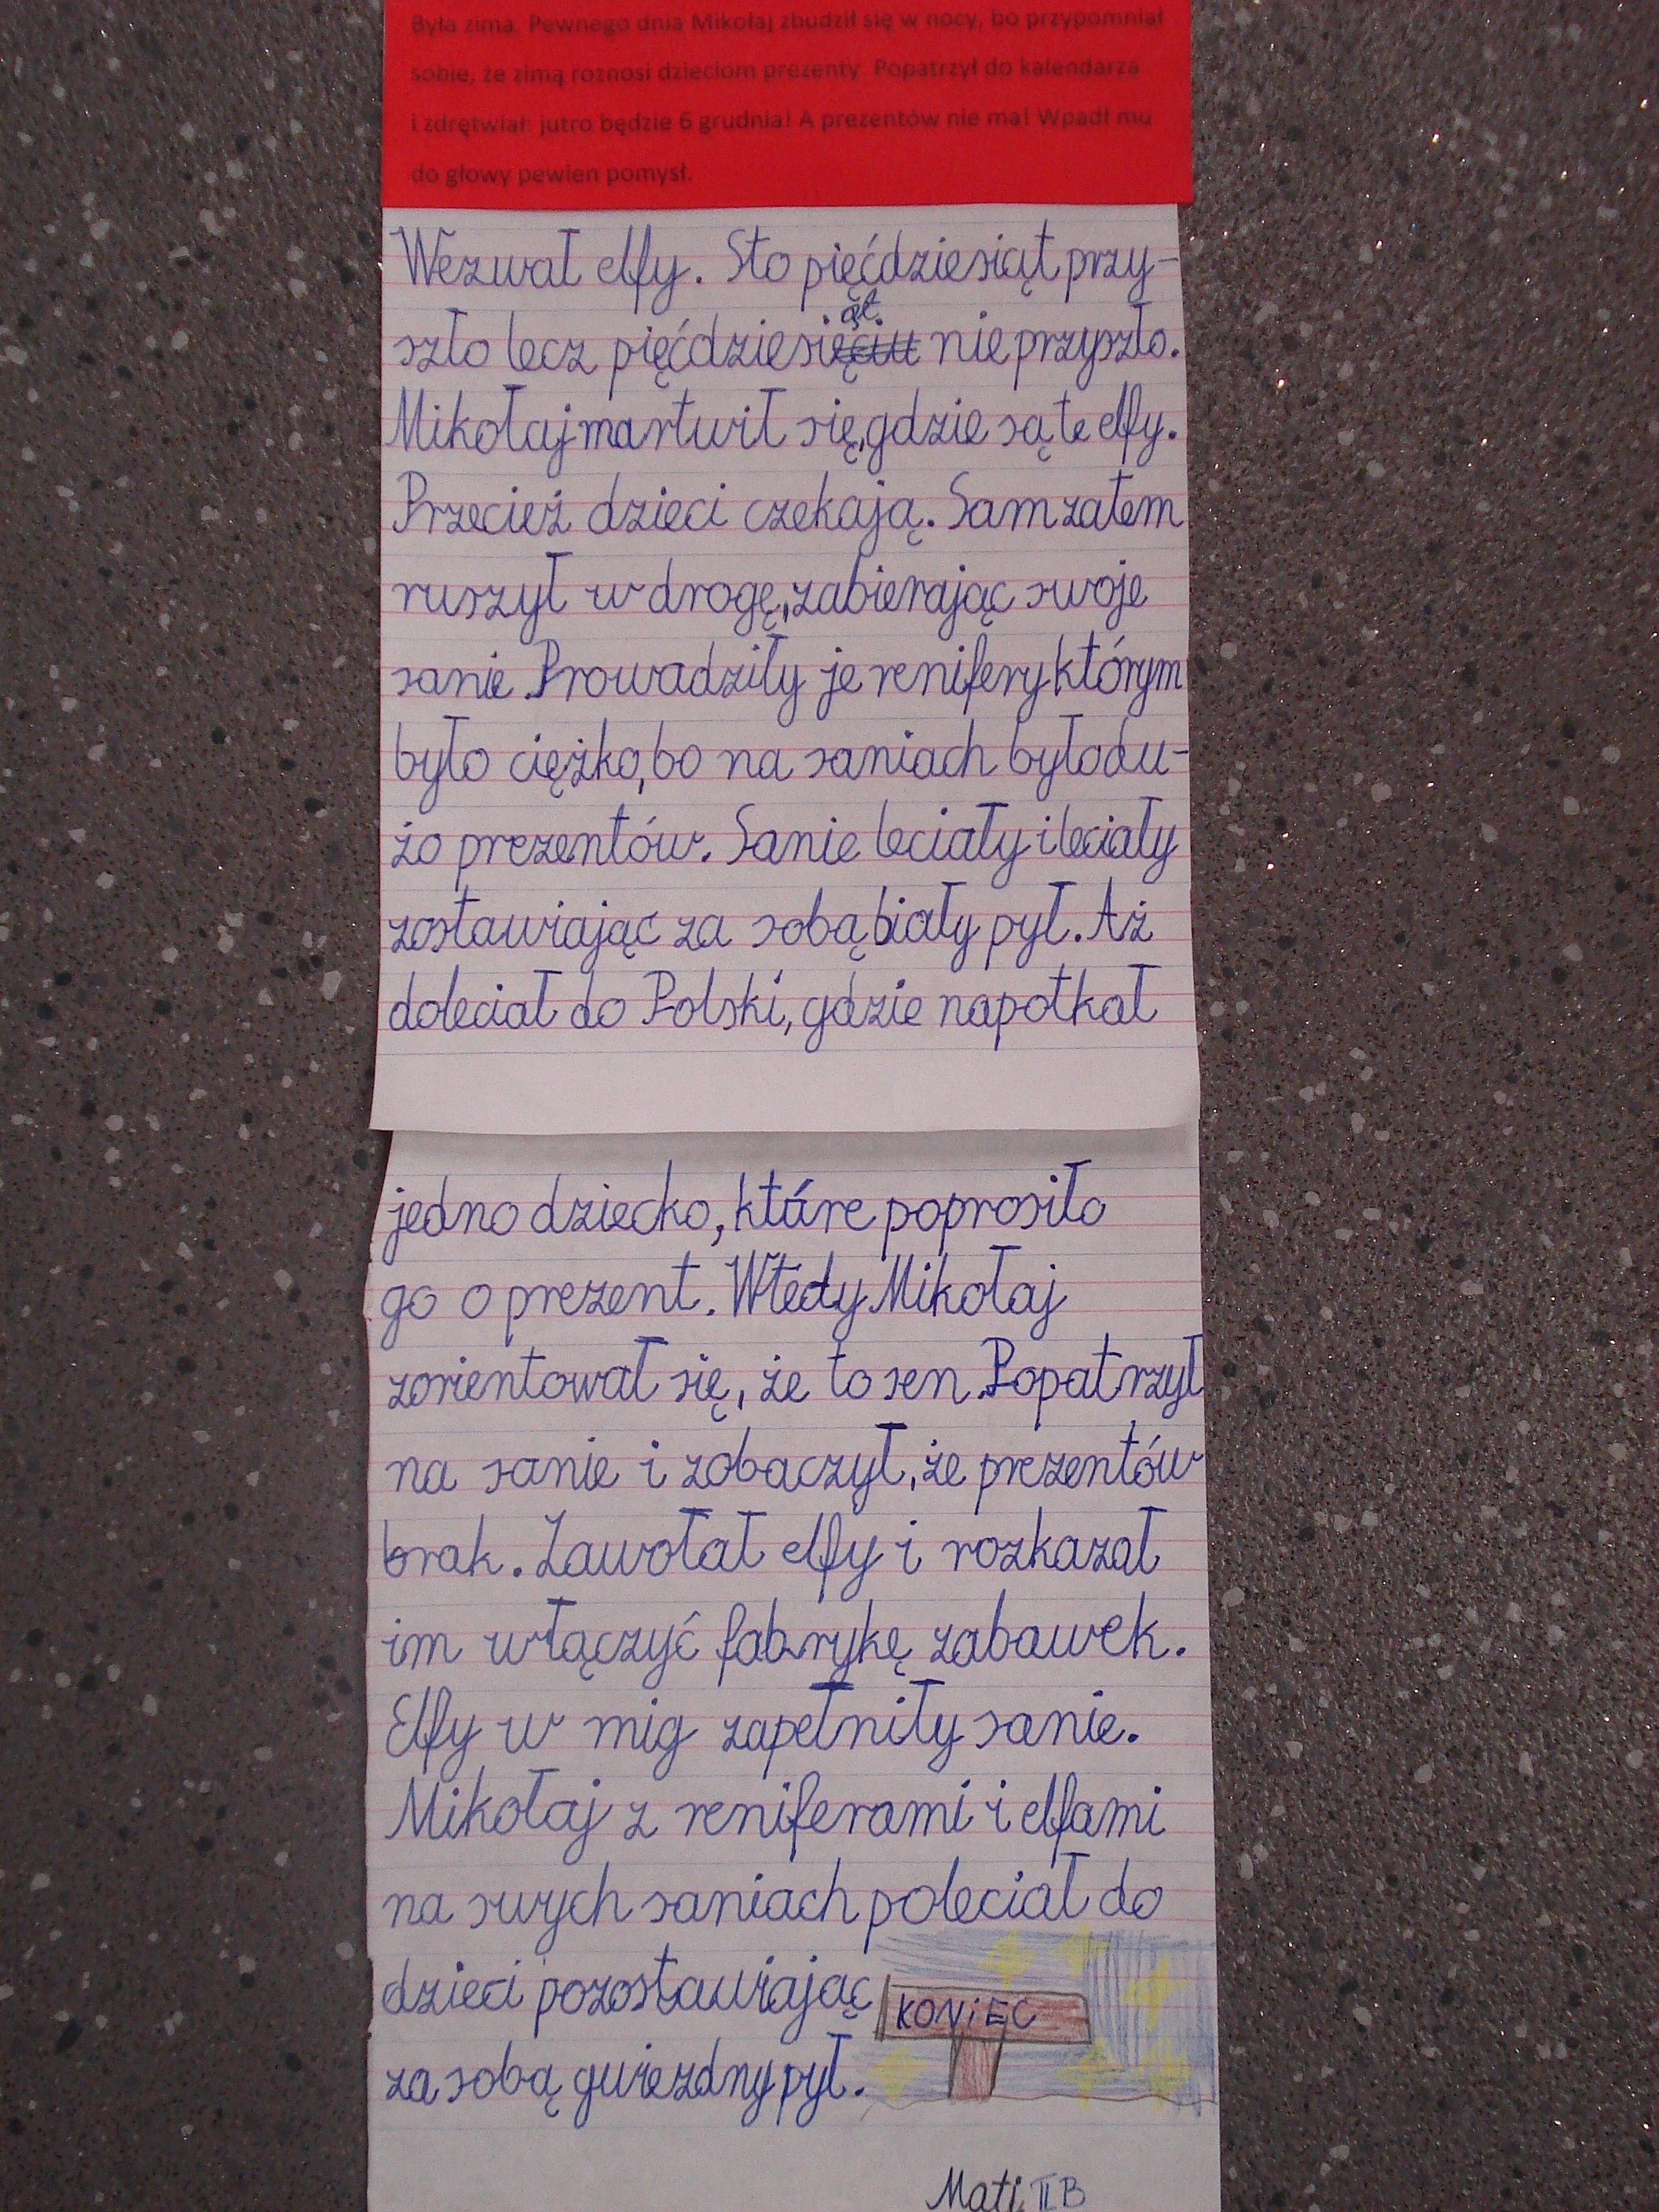 Była zima. Pewnego dnia Mikołaj zbudził się w nocy, bo przypomniał
sobie, że zimą roznosi dzieciom prezenty. Popatrzył do kalendarza
i zdrętwiał: jutro będzie 6 grudnia! A prezentów nie ma! Wpadł mu
do głowy pewien pomysł.
Wezwał elfy. Sto pięćdziesiąt przy-
szło lecz pięćdziesiąt nie przyszło.
Mikołaj martwił się, gdzie są te elfy.
Przecież dzieci czekają. Sam zatem
ruszył w drogę, zabierając swoje
sanie. Prowadziły je renifery którym
było ciężko, bo na saniach było du-
żo prezentów. Sanie leciały i leciały
zostawiając za sobą biały pył. Aż
doleciał do Polski, gdzie napotkał
jedno dziecko, które poprosiło
go o prezent. Wtedy Mikołaj
zorientował się, że to sen. Popatrzył
na sanie i zobaczył, że prezentów
brak. Zawołał elfy i rozkazał
im włączyć fabrykę zabawek.
Elfy w mig zapełniły sanie.
Mikołaj z reniferami i elfami
na swych saniach poleciał do
dzieci pozostawiając
KONIEC
za sobą gwiezdny pył.
Mati IIB